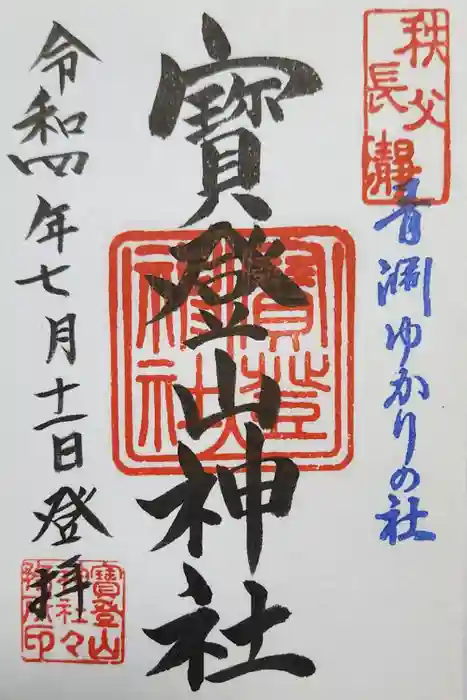 秩父
長瀞
青淵ゆかりの社
寳登山神社
令和四年七月十一日登拝
寳登山
神社々
務所印